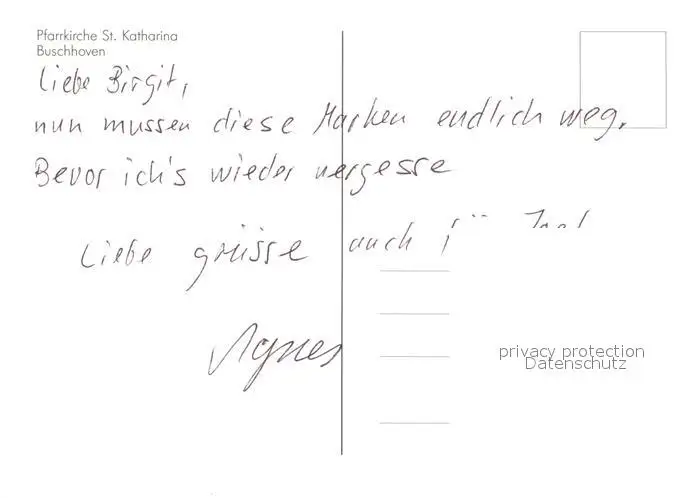 Pfarrkirche St. Katharina
Buschhoven
Liebe Birgit,
nun mussen diese Marken endlich weg.
Bevor ich's wieder vergesse
Liebe grüsse auch für
Agnes
privacy protection
Datenschutz